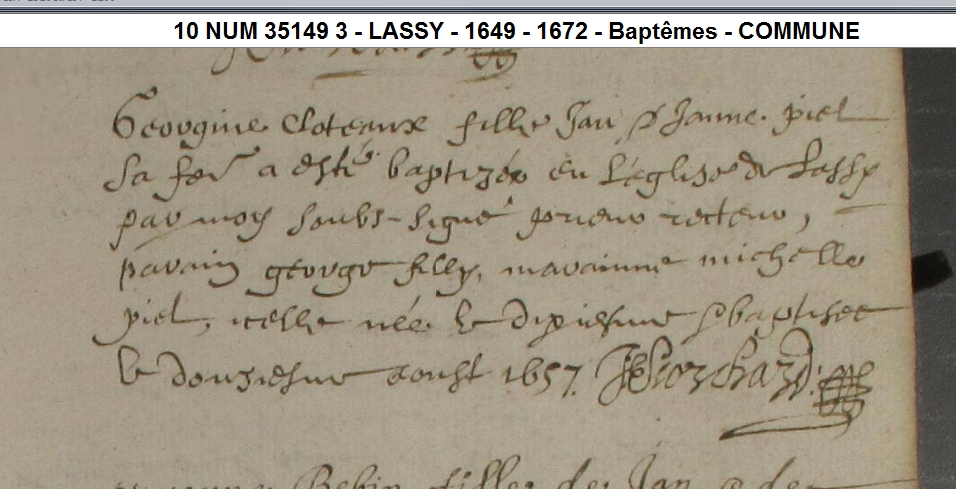 10 NUM 35149 3 - LASSY - 1649 - 1672 - Baptêmes - COMMUNE
Georgine Cloteaux fille Jan & Janne piel
sa fe. a esté baptizée en l'église de Lassy
par moy soubs-signé prieur recteur,
parain george filly, marainne michelle
piel, icelle née le dixiesme & baptisee
le douziesme aoust 1657.
fille de Jan & de